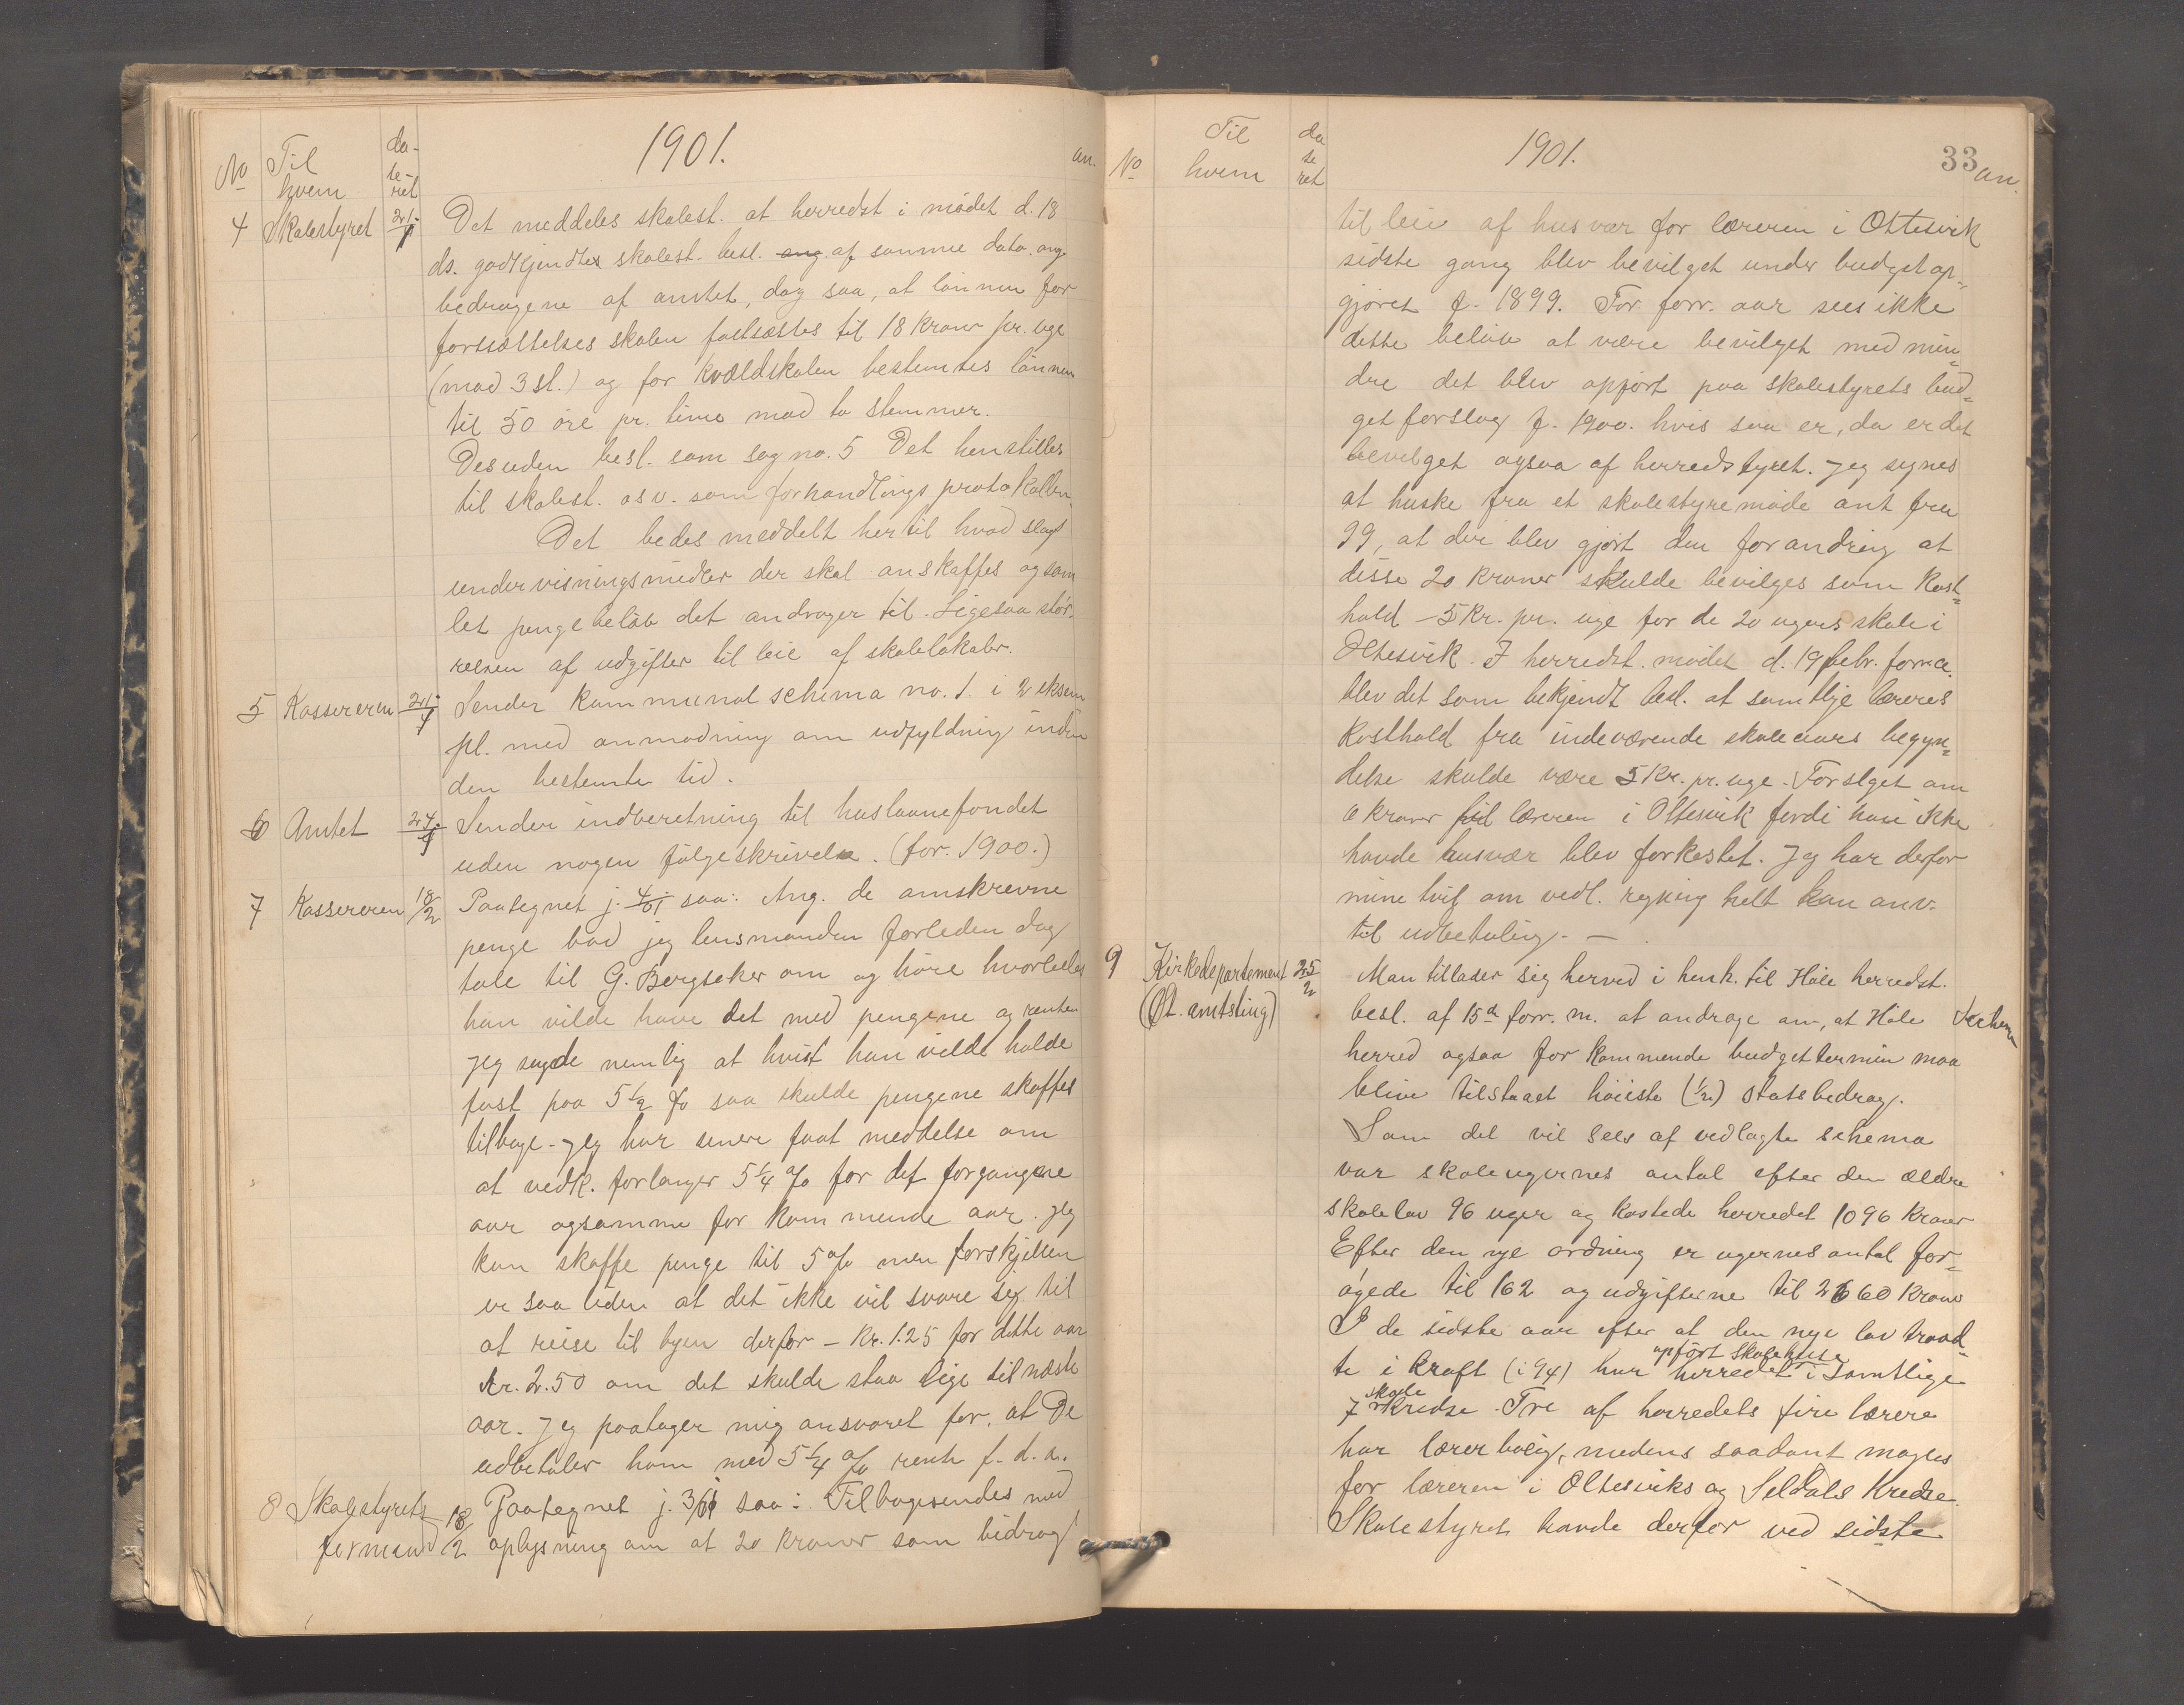 1901.
an.
No
Til
hvem
da-
te-
ret
4 Skolestyret 21/1 Det meddeles skolest. at herredst i mødet d. 18
ds. godkjendtes skolest. besl. ang. af samme dato. ang
bedragene af amtet, dog saa, at lønnen for
forsættelses skolen fastsættes til 18 kroner pr. uge
(mod 3 st.) og for kvældskolen bestemtes lønnen
til 50 øre pr. time mod to stemmer.
Desuden besl. som sag no. 5 Det henstilles
til skolest. osv. som forhandlings protokollen.
Det bedes meddelt hertil hvad slags
undervisningsmidler der skal anskaffes og sam
let pengebeløb det andrager til. Ligesaa stør-
relsen af udgifter til leie af skolelokaler.
5 Kassereren 21/1 Sender kommunal schema no. 1. i 2 eksem
pl. med anmodning om udfyldning inden
den bestemte tid.
6 Amtet 24/1 Sender indberetning til huslaanefondet
uden nogen følgeskrivelse. (for. 1900.)
7 Kassereren 18/2 Paategnet j. 4/01 saa: Ang. de omskrevne
penge bad jeg lensmanden forleden dag
tale til G. Bergseker om og høre hvorledes
han vilde have det med pengene og renten
jeg sagde nemlig at hvist han vilde holde
fast paa 5 1/2 % saa skulde pengene skaffes
tilbage. Jeg har senere faat meddelse om
at vedk. forlanger 5 1/4 % for det forgangne
aar og samme for kommende aar. jeg
kan skaffe penge til 5 % men forskjellen
er saa liden at det ikke vil svare sig til
at reise til byen derfor – Kr. 1.25 for dette aar
kr. 2.50 om det skulde staa lige til næste
aar. Jeg paatager mig ansvaret for, at De
udbetaler ham med 5 1/4 % rente f. d. a.
8 Skolestyrets 18/2 Paategnet j. 3/01 saa: Tilbagesendes med
formand oplysning om at 20 kroner som bidrag
1901.
33
an.
No
Til
hvem
da
te
ret
til leie af husvær for læreren i Oltesvik
sidste gang blev bevilget under budgetop-
gjøret f. 1899. For forr. aar sees ikke
dette beløb at være bevilget med min-
dre det blev opført paa skolestyrets bud-
getforslag f. 1900. hvis saa er, da er det
bevilget ogsaa af herredstyret. Jeg synes
at huske fra et skolestyremøde ant fra
99, at der blev gjørt den forandring at
disse 20 kroner skulde bevilges som kost-
hold – 5 Kr. pr. uge for de 20 ugers skole i
Oltesvik. I herredst. mødet d. 19 febr. forr. a.
blev det som bekjendt besl. at samtlige læreres
kosthold fra indeværende skoleaars begyn-
delse skulde være 5 Kr. pr. uge. Forslget om
0 kroner til læreren i Oltesvik fordi han ikke
havde husvær blev forkastet. Jeg har derfor
mine tvil om vedl. regning helt kan anv.
til udbetaling. –
9 Kirkedepartement 25/2 Man tillader sig herved i henh. til Høle herredst.
(Gt. amtsting) besl. af 15d forr. m. at andrage om, at Høle
herred ogsaa for kommende budgettermin maa
blive tilstaaet høieste (1/2) statsbedrag.
Som det vil sees af vedlagte schema
var skoleugernes antal efter den ældre
skolelov 96 uger og kostede herredet 1096 kroner
Efter den nye ordning er ugernes antal for-
øgede til 162 og udgifterne til 2660 kroner
I de sidste aar efter at den nye lov traad-
te i kraft (i 94) har herredet opført skolehuse i samtlige
7 skolekredse. Tre af herredets fire lærere
har lærerbolig, medens saadant mangles
for læreren i Oltesviks og Seldals kredse.
Skolestyret havde derfor ved sidste